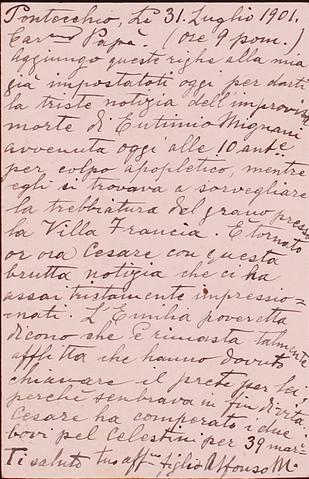 Pontecchio, Lì 31. Luglio 1901.
Car.mo Papà. (ore 9 pom.)
Aggiungo queste righe alla mia
già impostatoti oggi per darti
la triste notizia dell'improvvisa
morte di Eutimio Mignani
avvenuta oggi alle 10 ant.e
per colpo apopletico, mentre
egli si trovava a sorvegliare
la trebbiatura del grano presso
la Villa Francia. È tornato
or ora Cesare con questa
brutta notizia che ci ha
assai tristamente impressio=
nati. L'Emilia poveretta
dicono che è rimasta talmente
afflitta che hanno dovuto
chiamare il prete per lei,
perchè sembrava in fin di vita.
Cesare ha comperato i due
bovi pel Celestini per 39 mar=
Ti saluto tuo aff.mo figlio Alfonso M.a